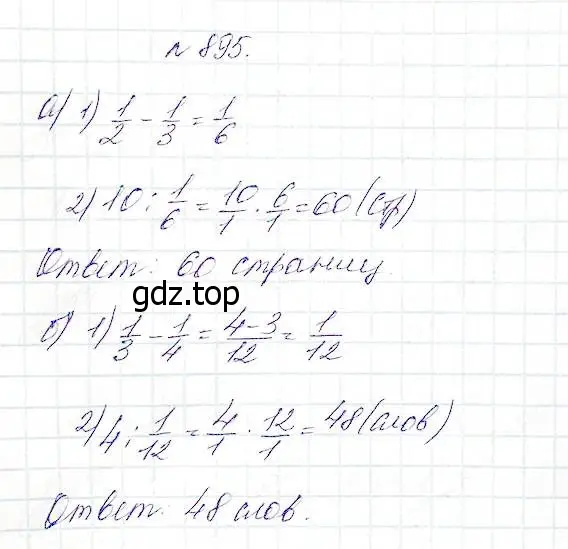 № 895.
а) 1) 1/2 - 1/3 = 1/6
2) 10 : 1/6 = 10/1 · 6/1 = 60 (стр)
Ответ: 60 страниц.
gdz.top
б) 1) 1/3 - 1/4 = 4-3/12 = 1/12
2) 4 : 1/12 = 4/1 · 12/1 = 48 (слов)
Ответ: 48 слов.